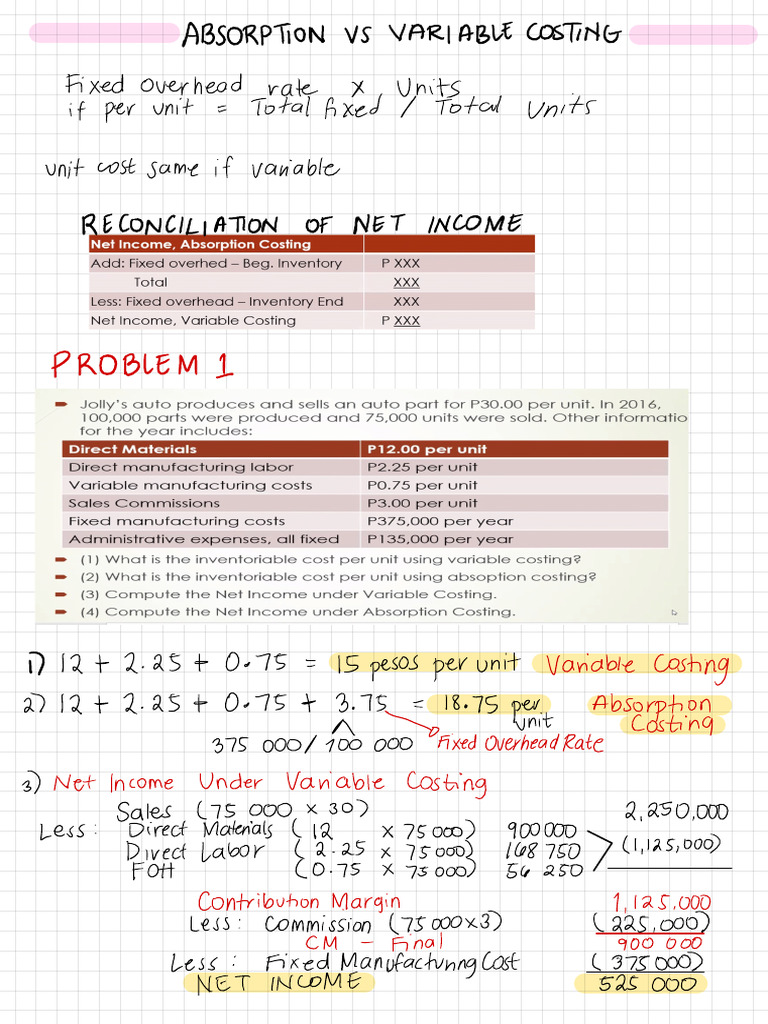 ABSORPTION VS VARIABLE COSTING
Fixed Overhead rate x Units
if per unit = Total fixed / Total Units
unit cost same if variable
RECONCILIATION OF NET INCOME
Net Income, Absorption Costing
Add: Fixed overhed – Beg. Inventory P XXX
Total XXX
Less: Fixed overhead – Inventory End XXX
Net Income, Variable Costing P XXX
PROBLEM 1
Jolly's auto produces and sells an auto part for P30.00 per unit. In 2016,
100,000 parts were produced and 75,000 units were sold. Other informatio
for the year includes:
Direct Materials P12.00 per unit
Direct manufacturing labor P2.25 per unit
Variable manufacturing costs P0.75 per unit
Sales Commissions P3.00 per unit
Fixed manufacturing costs P375,000 per year
Administrative expenses, all fixed P135,000 per year
(1) What is the inventoriable cost per unit using variable costing?
(2) What is the inventoriable cost per unit using absoption costing?
(3) Compute the Net Income under Variable Costing.
(4) Compute the Net Income under Absorption Costing.
1) 12 + 2.25 + 0.75 = 15 pesos per unit Variable Costing
2) 12 + 2.25 + 0.75 + 3.75 = 18.75 per unit Absorption Costing
375 000 / 100 000 Fixed Overhead Rate
3) Net Income Under Variable Costing
Sales (75 000 x 30) 2,250,000
Less: Direct Materials (12 x 75 000) 900 000
Direct Labor (2.25 x 75 000) 168 750 (1,125,000)
FOH (0.75 x 75 000) 56 250
Contribution Margin 1,125,000
Less: Commission (75 000 x 3) (225,000)
CM - Final 900 000
Less: Fixed Manufacturing Cost (375 000)
NET INCOME 525 000